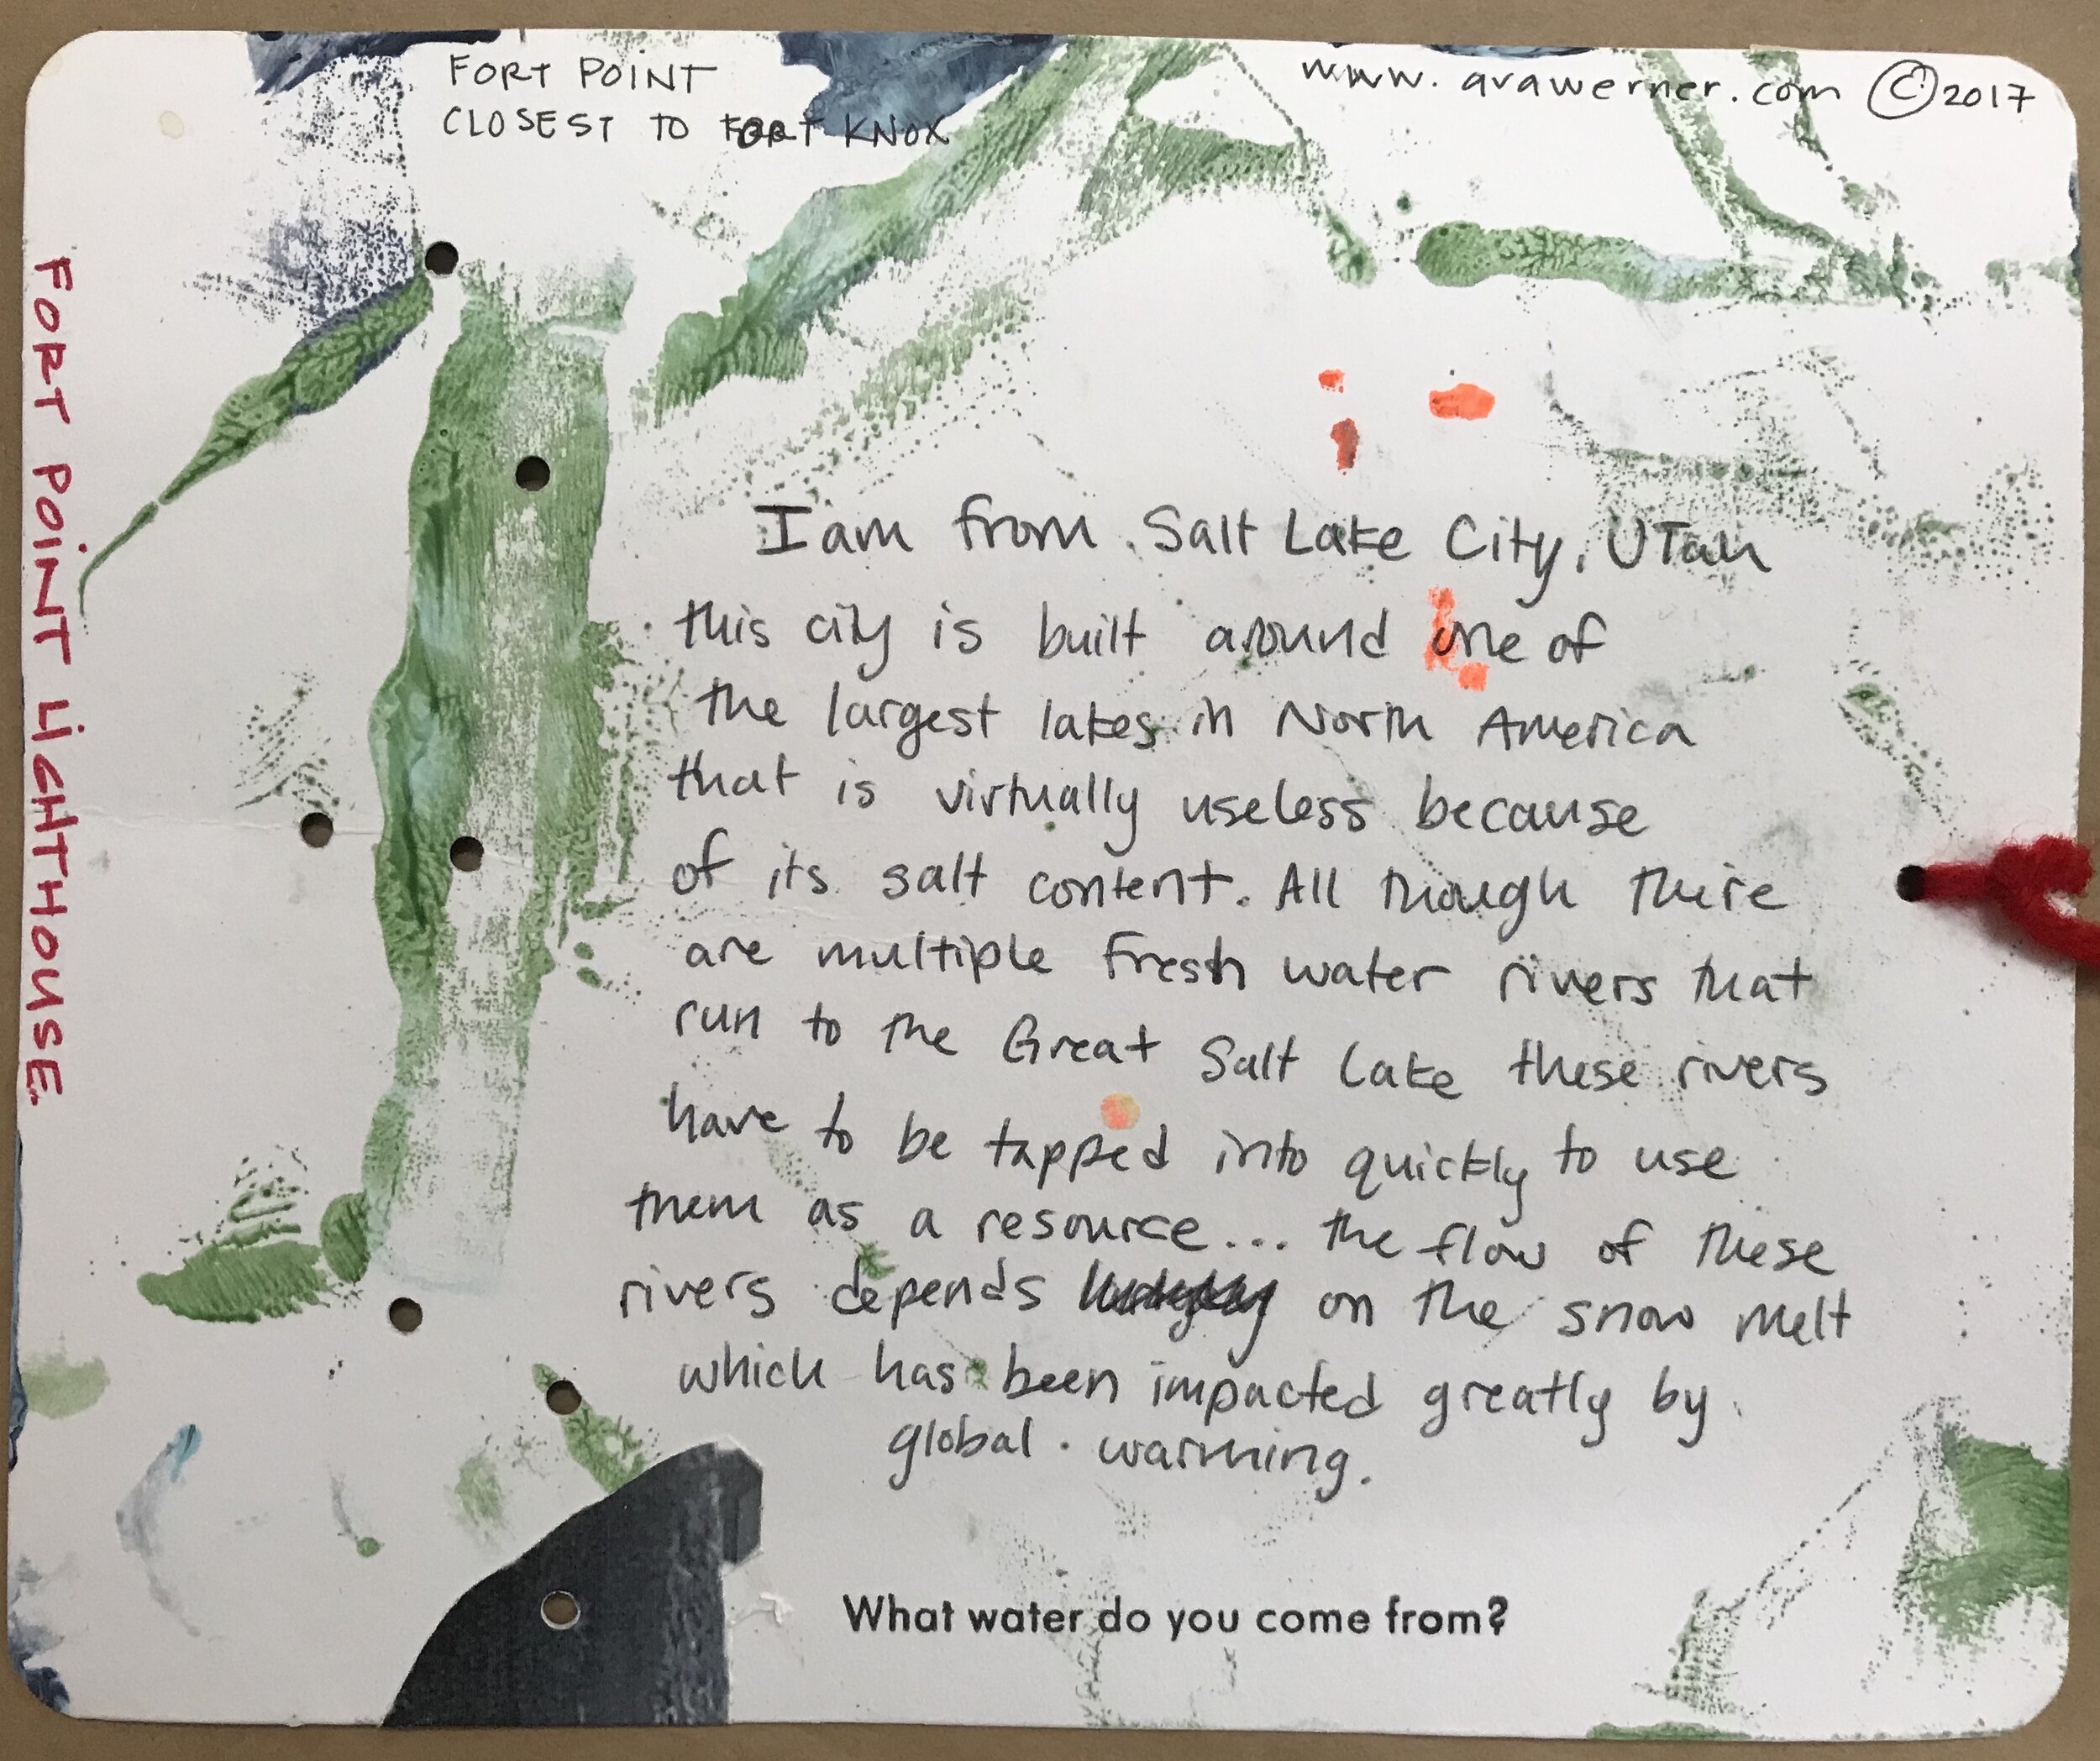 FORT POINT
CLOSEST TO FORT KNOX
www.avawerner.com © 2017
FORT POINT LIGHTHOUSE
I am from Salt Lake City, UTah
this city is built around one of
the largest lakes in North America
that is virtually useless because
of its salt content. All though there
are multiple fresh water rivers that
run to the Great Salt Lake these rivers
have to be tapped into quickly to use
them as a resource... the flow of these
rivers depends on the snow melt
which has been impacted greatly by
global warming.
What water do you come from?